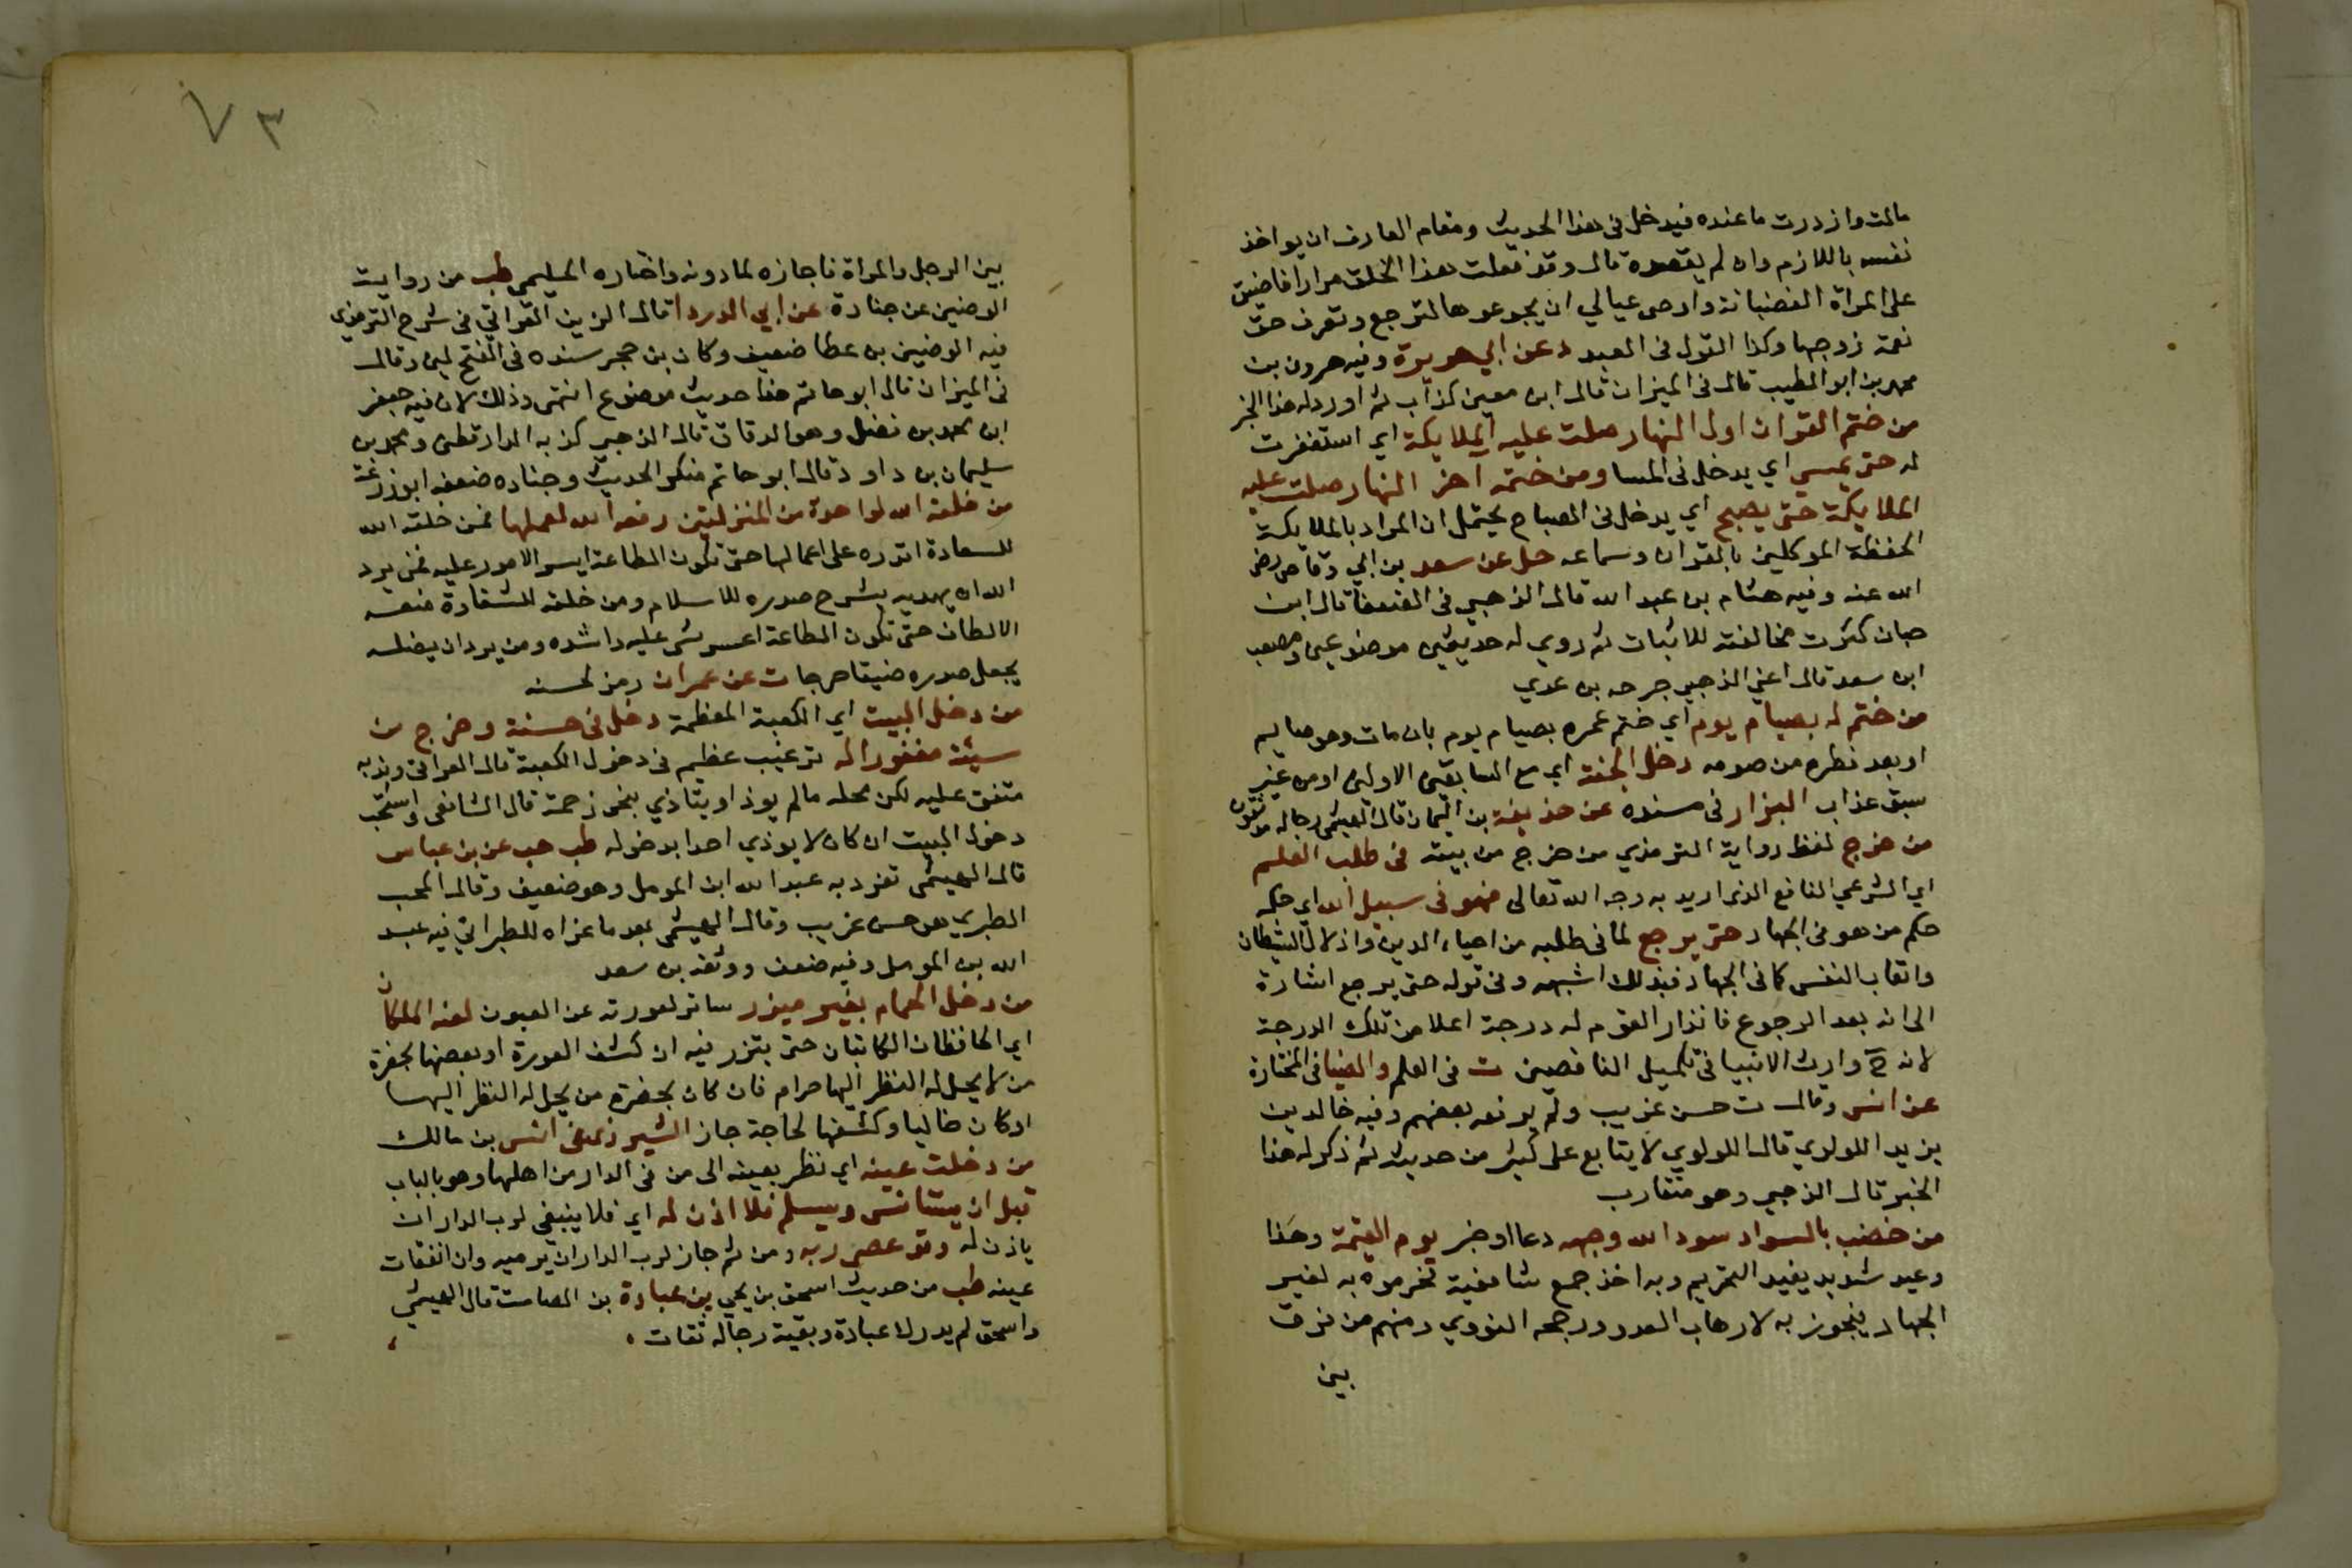 مالت وازدرت ما عنده فيدخل في هذا الحديث ومقام العارف ان يواخذ
نفسه باللازم وان لم يقصده قال وقد فعلت هذا الخلق مرارا فاضيق
على المراة الغضبانة واوصي عيالي ان يجوعوها لترجع وتعرف حق
نعمة زوجها وكذا القول في العبد د عن ابي هريرة وفيه هرون بن
محمد بن ابو الطيب قال في الميزان قال ابن معين كذاب ثم اورد له هذا الخبر
من ختم القران اول النهار صلت عليه الملايكة اي استغفرت
له حتى يمسي اي يدخل في المسا ومن ختمه اخر النهار صلت عليه
الملايكة حتى يصبح اي يدخل في الصباح يحتمل ان المراد بالملايكة
الحفظة الموكلين بالقران وسماعه حل عن سعد بن ابي وقاص رضي
الله عنه وفيه هشام بن عبد الله قال الذهبي في الضعفا قال ابن
حبان كثرت مخالفته للاثبات ثم روي له حديثين موضوعين ومصعب
ابن سعد قال اعني الذهبي جرحه بن عدي
من ختم له بصيام يوم اي ختم عمره بصيام يوم بان مات وهو صايم
او بعد فطره من صومه دخل الجنة اي مع السابقين الاولين او من غير
سبق عذاب البزار في مسنده عن حذيفة بن اليمان قال الهيثمي رجاله موثقون
من خرج لفظ رواية الترمذي من خرج من بيته في طلب العلم
اي الشرعي النافع الذي اريد به وجه الله تعالى فهو في سبيل الله اي حكمه
حكم من هو في الجهاد حتى يرجع لما في طلبه من احياء الدين واذلال الشيطان
واتعاب النفس كما في الجهاد فبذلك اشبهه وفي قوله حتى يرجع اشارة
الى انه بعد الرجوع فانذار القوم له درجة اعلا من تلك الدرجة
لانه ح وارث الانبيا في تكميل الناقصين ت في العلم والضيا في المختارة
عن انس وقال ت حسن غريب ولم يرفعه بعضهم وفيه خالد بن
يزيد اللولوي قال اللولوي لا يتابع على كثير من حديثه ثم ذكر له هذا
الخبر قال الذهبي وهو متقارب
من خضب بالسواد سود الله وجهه دعا او خبر يوم القيمة وهذا
وعيد شديد يفيد التحريم وبه اخذ جمع شافعية فحرموه به لغير
الجهاد فيجوز به لارهاب العدو ورجحه النووي ومنهم من فرق
بين
٧٣
بين الرجل والمراة فاجازه لها دونه واختاره الحليمي طب من روايت
الوضين عن جنادة عن ابي الدردا قال الزين العراقي في شرح الترمذي
فيه الوضين بن عطا ضعيف وكان بن حجر سنده في الفتح لين وقال
في الميزان قال ابو حاتم هذا حديث موضوع انتهى وذلك لان فيه جعفر
ابن محمد بن فضل وهو الدقاق قال الذهبي كذبه الدارقطني ومحمد بن
سليمان بن داود قال ابو حاتم منكر الحديث وجناده ضعفه ابو زرعة
من خلقه الله لواحدة من المنزلتين وفقه الله لعملها فمن خلقه الله
للسعادة اقدره على اعمالها حتى تكون الطاعة ايسر الامور عليه فمن يرد
الله ان يهديه يشرح صدره للاسلام ومن خلقه للشقاوة منعه
الالطاف حتى تكون الطاعة اعسر شي عليه واشده ومن يرد ان يضله
يجعل صدره ضيقا حرجا ت عن عمران رمز لحسنه
من دخل البيت اي الكعبة المعظمة دخل في حسنة وخرج من
سيئة مغفورا له ترغيب عظيم في دخول الكعبة قال العراقي وندبه
متفق عليه لكن محله ما لم يوذ او يتاذي بنحو زحمة قال الشافعي واستحب
دخول البيت ان كان لا يوذي احدا بدخوله طب هب عن بن عباس
قال الهيثمي تفرد به عبد الله ابن المومل وهو ضعيف وقال المحب
الطبري هو حسن غريب وقال الهيثمي بعد ما عزاه للطبراني فيه عبد
الله بن المومل وفيه ضعف ووثقه بن سعد
من دخل الحمام بغير ميزر ساتر لعورته عن العيون لعنه الملكان
اي الحافظان الكاتبان حتى يتزر فيه ان كشف العورة او بعضها بحضرة
من لا يحل له النظر اليها حرام فان كان بحضرة من يحل له النظر اليها
او كان خاليا وكشفها لحاجة جاز الشيرازي عن انس بن مالك
من دخلت عينه اي نظر بعينه الى من في الدار من اهلها وهو بالباب
قبل ان يستانس ويسلم فلا اذن له اي فلا ينبغي لرب الدار ان
ياذن له وقد عصى ربه ومن ثم جاز لرب الدار ان يرميه وان انفقات
عينه طب من حديث اسحق بن يحي بن عبادة بن الصامت قال الهيثمي
واسحق لم يدرك عبادة وبقية رجاله ثقات